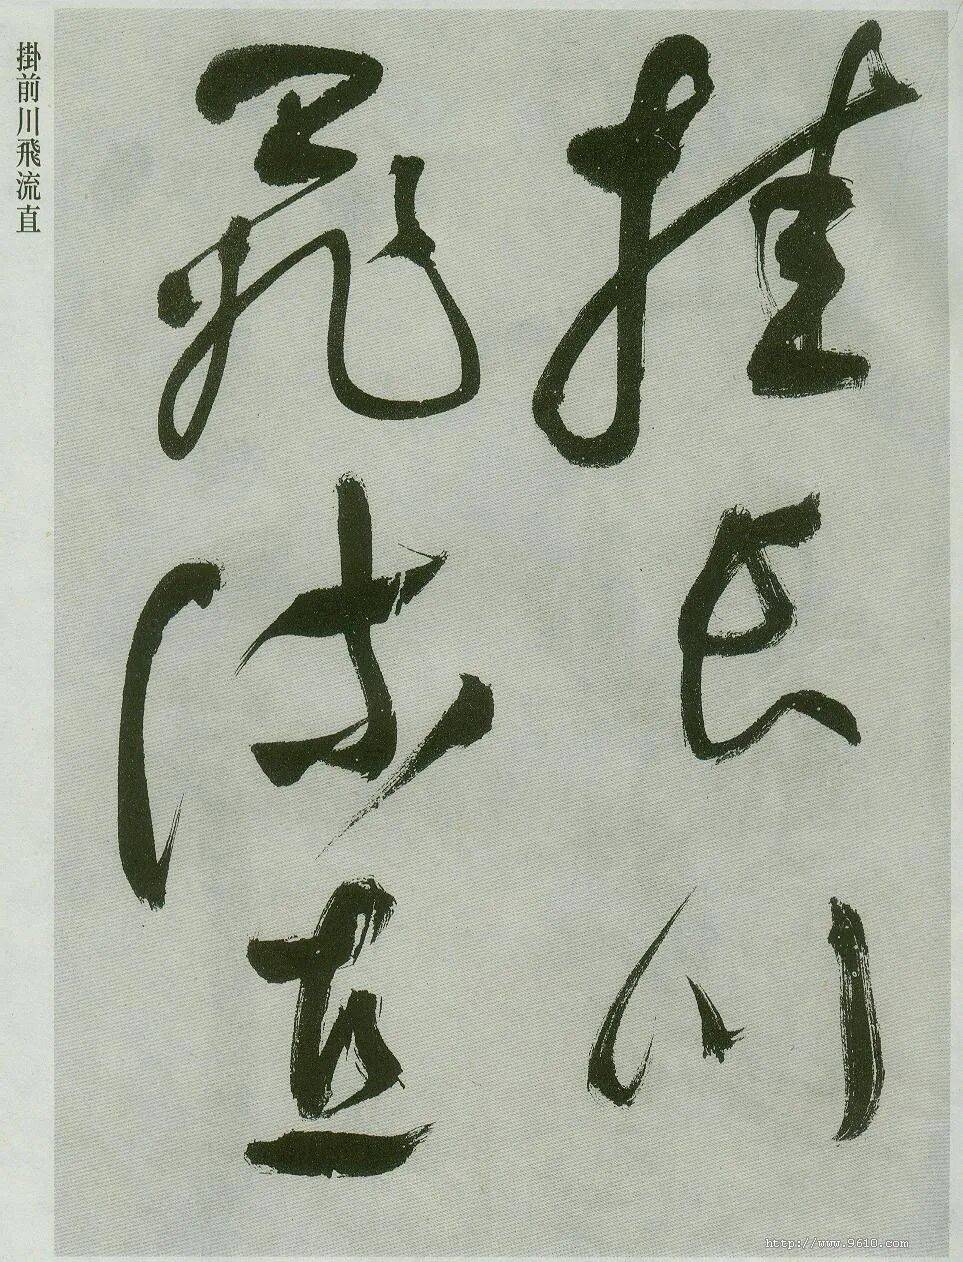 挂长川
飛流直
掛前川飛流直
http://www.9610.com